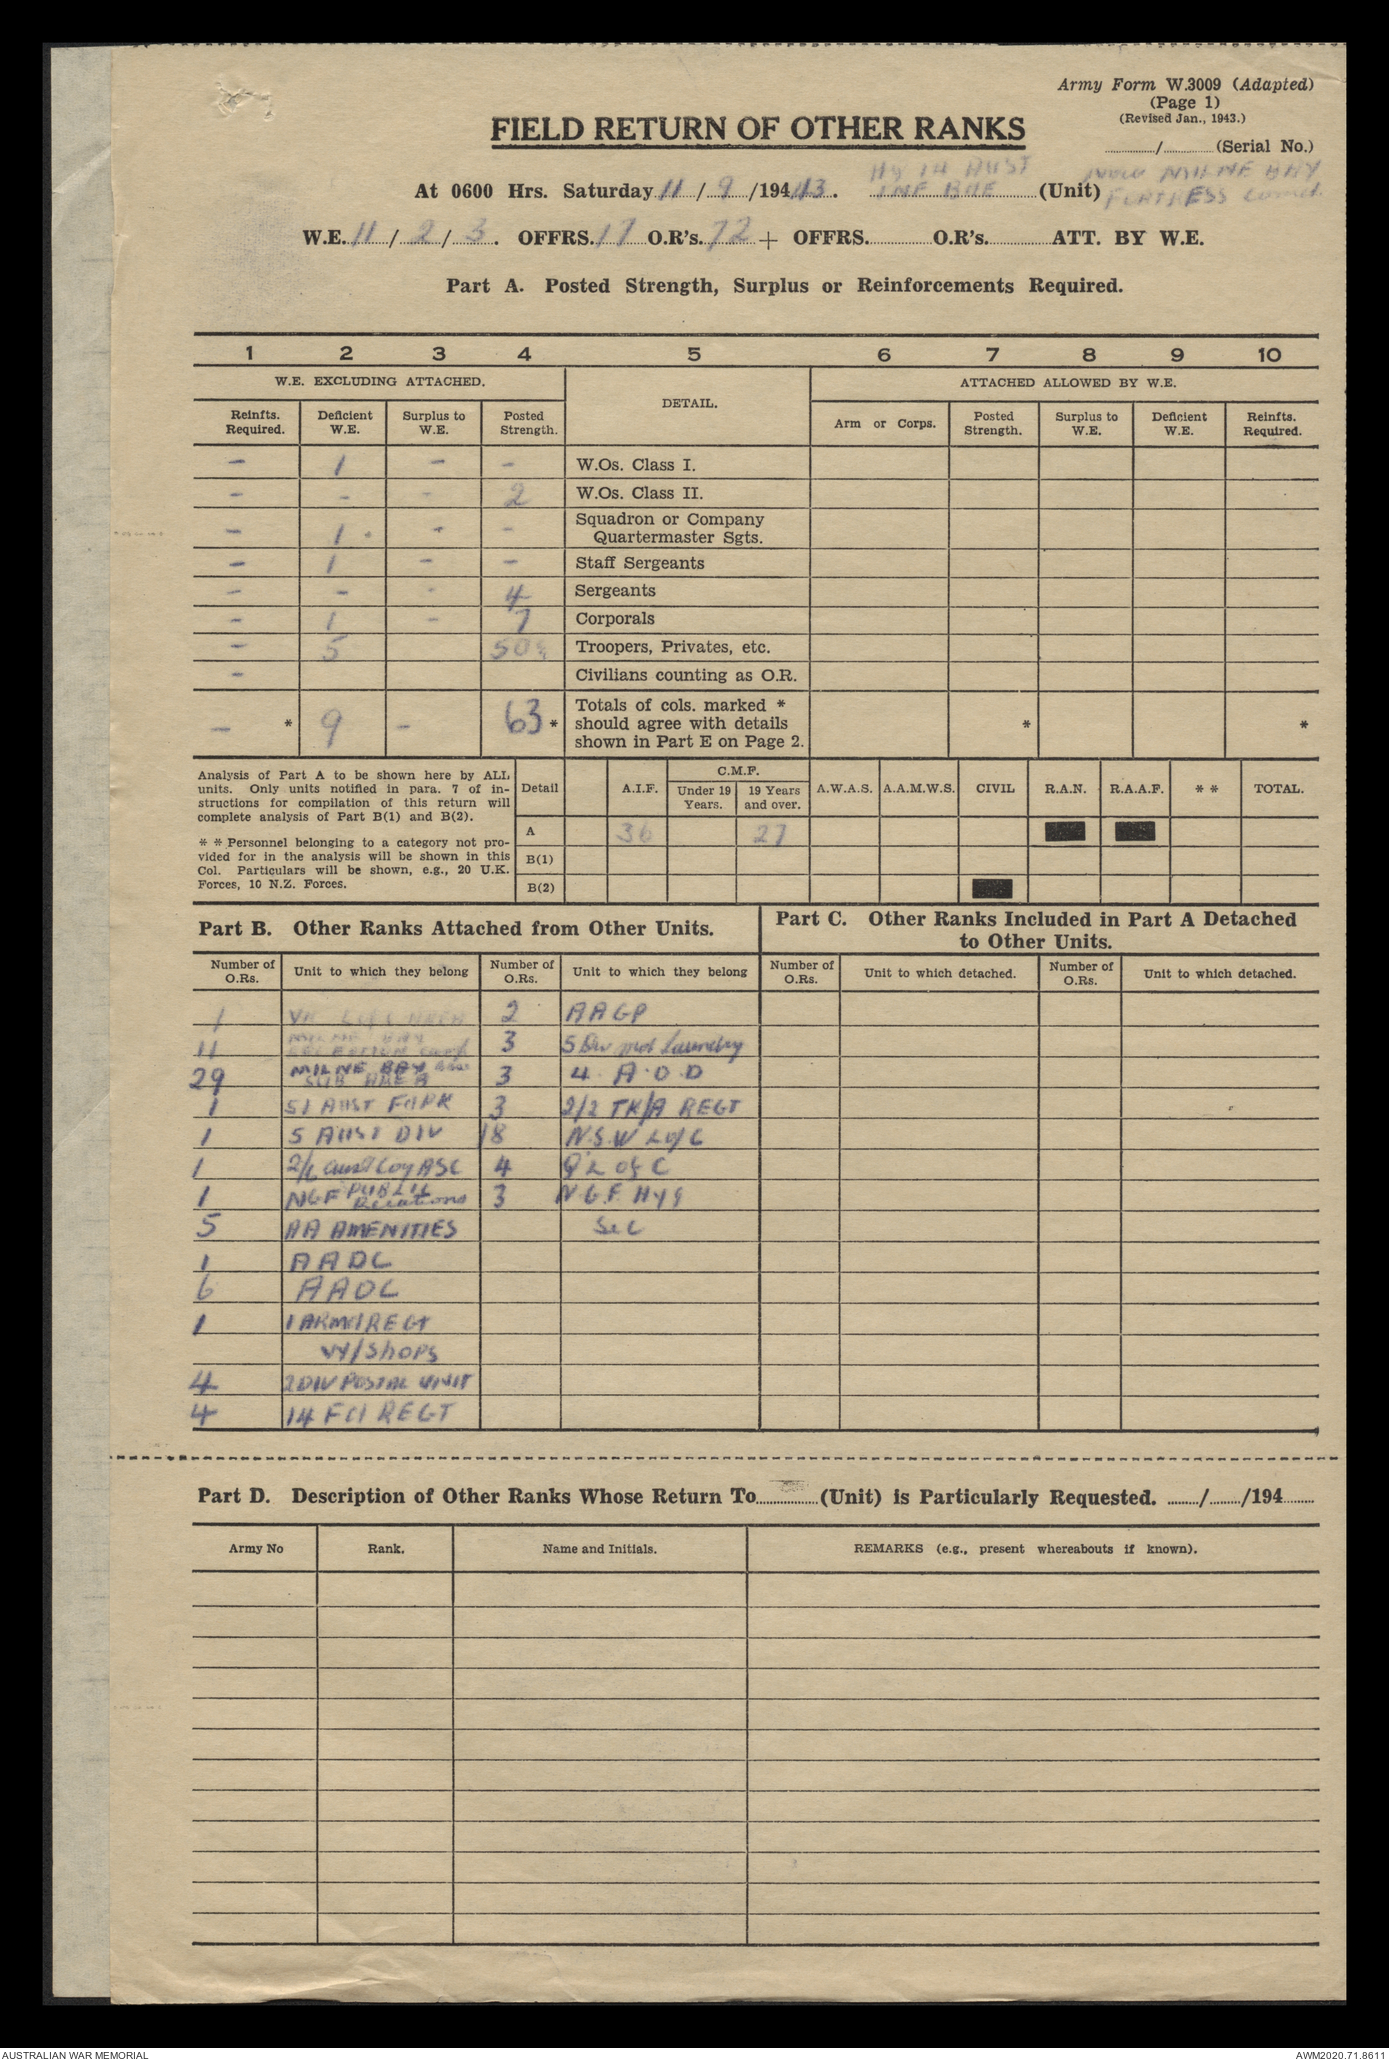 Army Form W.3009 (Adapted)
(Page 1)
(Revised Jan., 1943.)
FIELD RETURN OF OTHER RANKS
............/............(Serial No.)
At 0600 Hrs. Saturday 11/9/1943. HQ 14 AUST INF BDE (Unit) NOW MILNE BAY FORTRESS
W.E. 11/2/3. OFFRS. 17 O.R's. 72 + OFFRS............ O.R's............ ATT. BY W.E.
Part A. Posted Strength, Surplus or Reinforcements Required.
1 2 3 4 5 6 7 8 9 10
W.E. EXCLUDING ATTACHED. DETAIL. ATTACHED ALLOWED BY W.E.
Reinfts. Required. Deficient W.E. Surplus to W.E. Posted Strength. Arm or Corps. Posted Strength. Surplus to W.E. Deficient W.E. Reinfts. Required.
- 1 - - W.Os. Class I.
- - - 2 W.Os. Class II.
- 1 - - Squadron or Company Quartermaster Sgts.
- 1 - - Staff Sergeants
- - - 4 Sergeants
- 1 - 7 Corporals
- 5 50 Troopers, Privates, etc.
- Civilians counting as O.R.
- * 9 - 63 * Totals of cols. marked * should agree with details shown in Part E on Page 2. * *
Analysis of Part A to be shown here by ALL units. Only units notified in para. 7 of instructions for compilation of this return will complete analysis of Part B(1) and B(2).
* * Personnel belonging to a category not provided for in the analysis will be shown in this Col. Particulars will be shown, e.g., 20 U.K. Forces, 10 N.Z. Forces.
Detail A.I.F. C.M.F. Under 19 Years. 19 Years and over. A.W.A.S. A.A.M.W.S. CIVIL R.A.N. R.A.A.F. * * TOTAL.
A 36 27
B(1)
B(2)
Part B. Other Ranks Attached from Other Units. Part C. Other Ranks Included in Part A Detached to Other Units.
Number of O.Rs. Unit to which they belong Number of O.Rs. Unit to which they belong Number of O.Rs. Unit to which detached. Number of O.Rs. Unit to which detached.
1 2 AAGP
11 MILNE BAY RECEPTION Camp 3 5 Div mob Laundry
29 MILNE BAY Base SUB AREA 3 4 A.O.D
1 51 AUST FD PK 3 2/2 TK/A REGT
1 5 AUST DIV 18 N.S.W L of C
1 2/6 Aust Coy ASC 4 Q L of C
1 NGF PUBLIC Relations 3 N.G.F. Hyg
5 AA AMENITIES Sec
1 AADC
6 AADC
1 1 ARMD REGT
W/Shops
4 2 DIV POSTAL UNIT
4 14 FD REGT
Part D. Description of Other Ranks Whose Return To............(Unit) is Particularly Requested. ......../......../194........
Army No Rank. Name and Initials. REMARKS (e.g., present whereabouts if known).
AUSTRALIAN WAR MEMORIAL AWM2020.71.8611